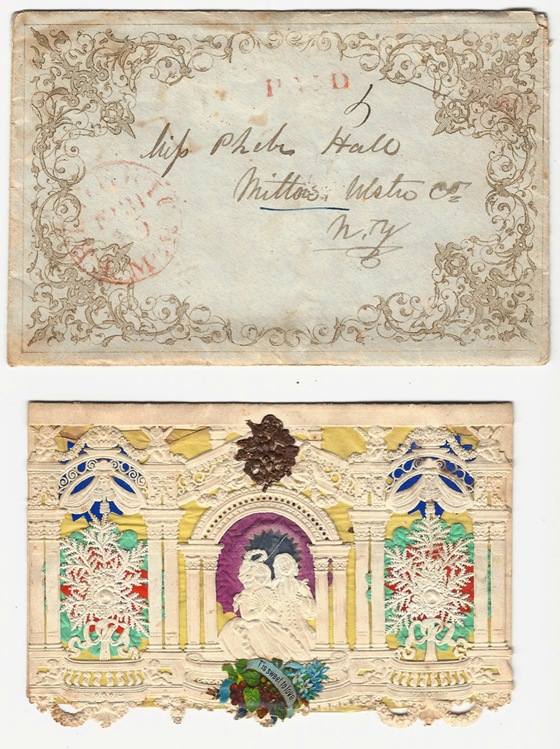 PAID
5
Miss Phebe Hall
Milton Ulster Co.
N. Y
FEB
'Tis sweet to love